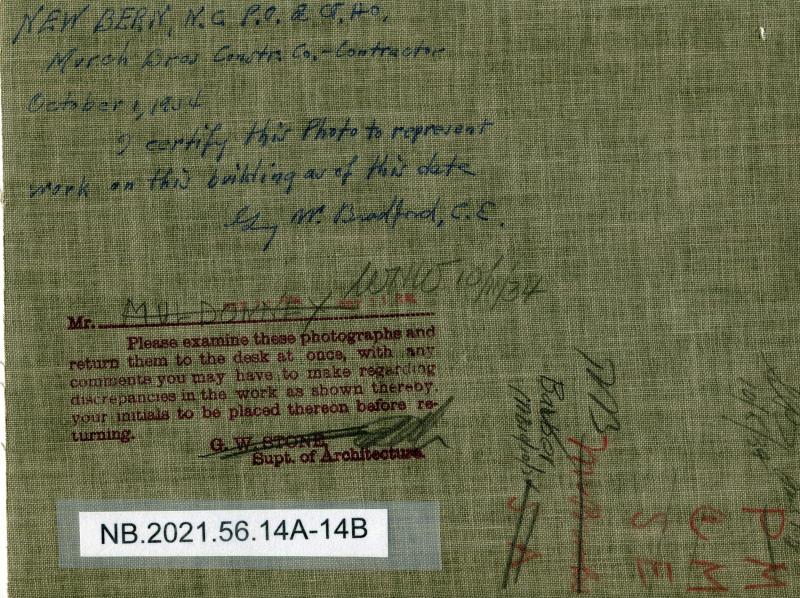 NEW BERN, N.C. P.O. & Ct. Ho.
Murch Bros Constr. Co. - Contractor
October 1, 1934
I certify this Photo to represent
work on this building as of this date
Guy W. Bradford, C.E.
10/11/34
Mr. MULDOWNEY
Please examine these photographs and
return them to the desk at once, with any
comments you may have to make regarding
discrepancies in the work as shown thereby,
your initials to be placed thereon before re-
turning.
G. W. STONE,
Supt. of Architecture.
Barber
S A
S E
@ M
P M
NB.2021.56.14A-14B